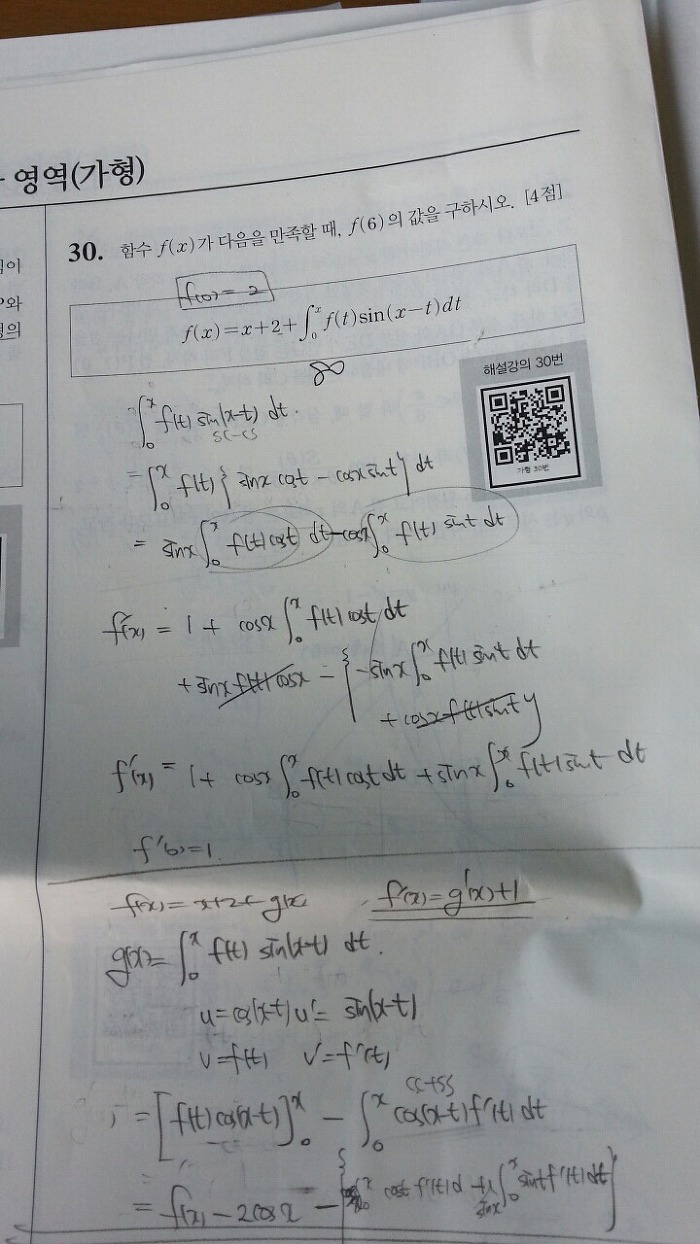 영역(가형)
30. 함수 f(x)가 다음을 만족할 때, f(6)의 값을 구하시오. [4점]
f(0) = 2
f(x)=x+2+∫₀ˣ f(t)sin(x−t)dt
80
해설강의 30번
가형 30번
∫₀ˣ f(t) sin(x-t) dt.
sc-cs
= ∫₀ˣ f(t) { sinx cost - cosx sint } dt
= sinx ∫₀ˣ f(t) cost dt - cosx ∫₀ˣ f(t) sint dt
f'(x) = 1 + cosx ∫₀ˣ f(t) cost dt
+ sinx f(t) cosx - { -sinx ∫₀ˣ f(t) sint dt
+ cosx f(t) sint }
f'(x) = 1 + cosx ∫₀ˣ f(t) cost dt + sinx ∫₀ˣ f(t) sint dt
f'(0) = 1.
f(x) = x+2+ g(x) f'(x) = g'(x) + 1
g(x) = ∫₀ˣ f(t) sin(x-t) dt.
u = cos(x-t) u' = sin(x-t)
v = f(t) v' = f'(t)
cc+ss
= [f(t) cos(x-t)]₀ˣ - ∫₀ˣ cos(x-t) f'(t) dt
= f(x) - 2cosx - { ∫₀ˣ cost f'(t) d + sinx ∫₀ˣ sint f'(t) dt }